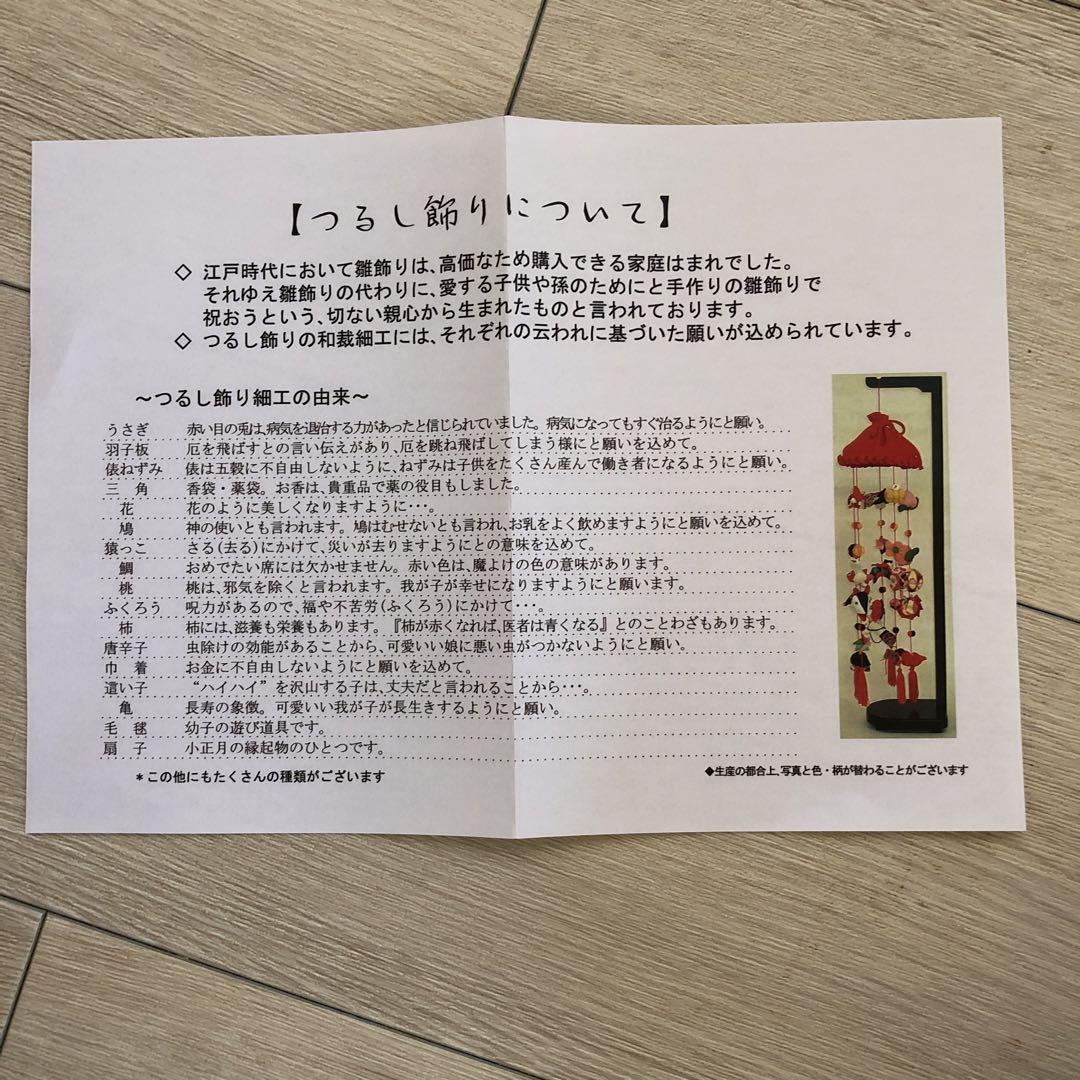 【つるし飾りについて】
◇ 江戸時代において雛飾りは、高価なため購入できる家庭はまれでした。
それゆえ雛飾りの代わりに、愛する子供や孫のためにと手作りの雛飾りで
祝おうという、切ない親心から生まれたものと言われております。
◇ つるし飾りの和裁細工には、それぞれの云われに基づいた願いが込められています。
～つるし飾り細工の由来～
うさぎ 赤い目の兎は、病気を退治する力があったと信じられていました。病気になってもすぐ治るようにと願い。
羽子板 厄を飛ばすとの言い伝えがあり、厄を跳ね飛ばしてしまう様にと願いを込めて。
俵ねずみ 俵は五穀に不自由しないように、ねずみは子供をたくさん産んで働き者になるようにと願い。
三 角 香袋・薬袋。お香は、貴重品で薬の役目もしました。
花 花のように美しくなりますように・・・。
鳩 神の使いとも言われます。鳩はむせないとも言われ、お乳をよく飲めますようにと願いを込めて。
猿っこ さる(去る)にかけて、災いが去りますようにとの意味を込めて。
鯛 おめでたい席には欠かせません。赤い色は、魔よけの色の意味があります。
桃 桃は、邪気を除くと言われます。我が子が幸せになりますようにと願います。
ふくろう 呪力があるので、福や不苦労(ふくろう)にかけて・・・。
柿 柿には、滋養も栄養もあります。『柿が赤くなれば、医者は青くなる』とのことわざもあります。
唐辛子 虫除けの効能があることから、可愛いい娘に悪い虫がつかないようにと願い。
巾 着 お金に不自由しないようにと願いを込めて。
這い子 “ハイハイ”を沢山する子は、丈夫だと言われることから・・・。
亀 長寿の象徴。可愛いい我が子が長生きするようにと願い。
毛 毬 幼子の遊び道具です。
扇 子 小正月の縁起物のひとつです。
＊この他にもたくさんの種類がございます
◆生産の都合上、写真と色・柄が替わることがございます